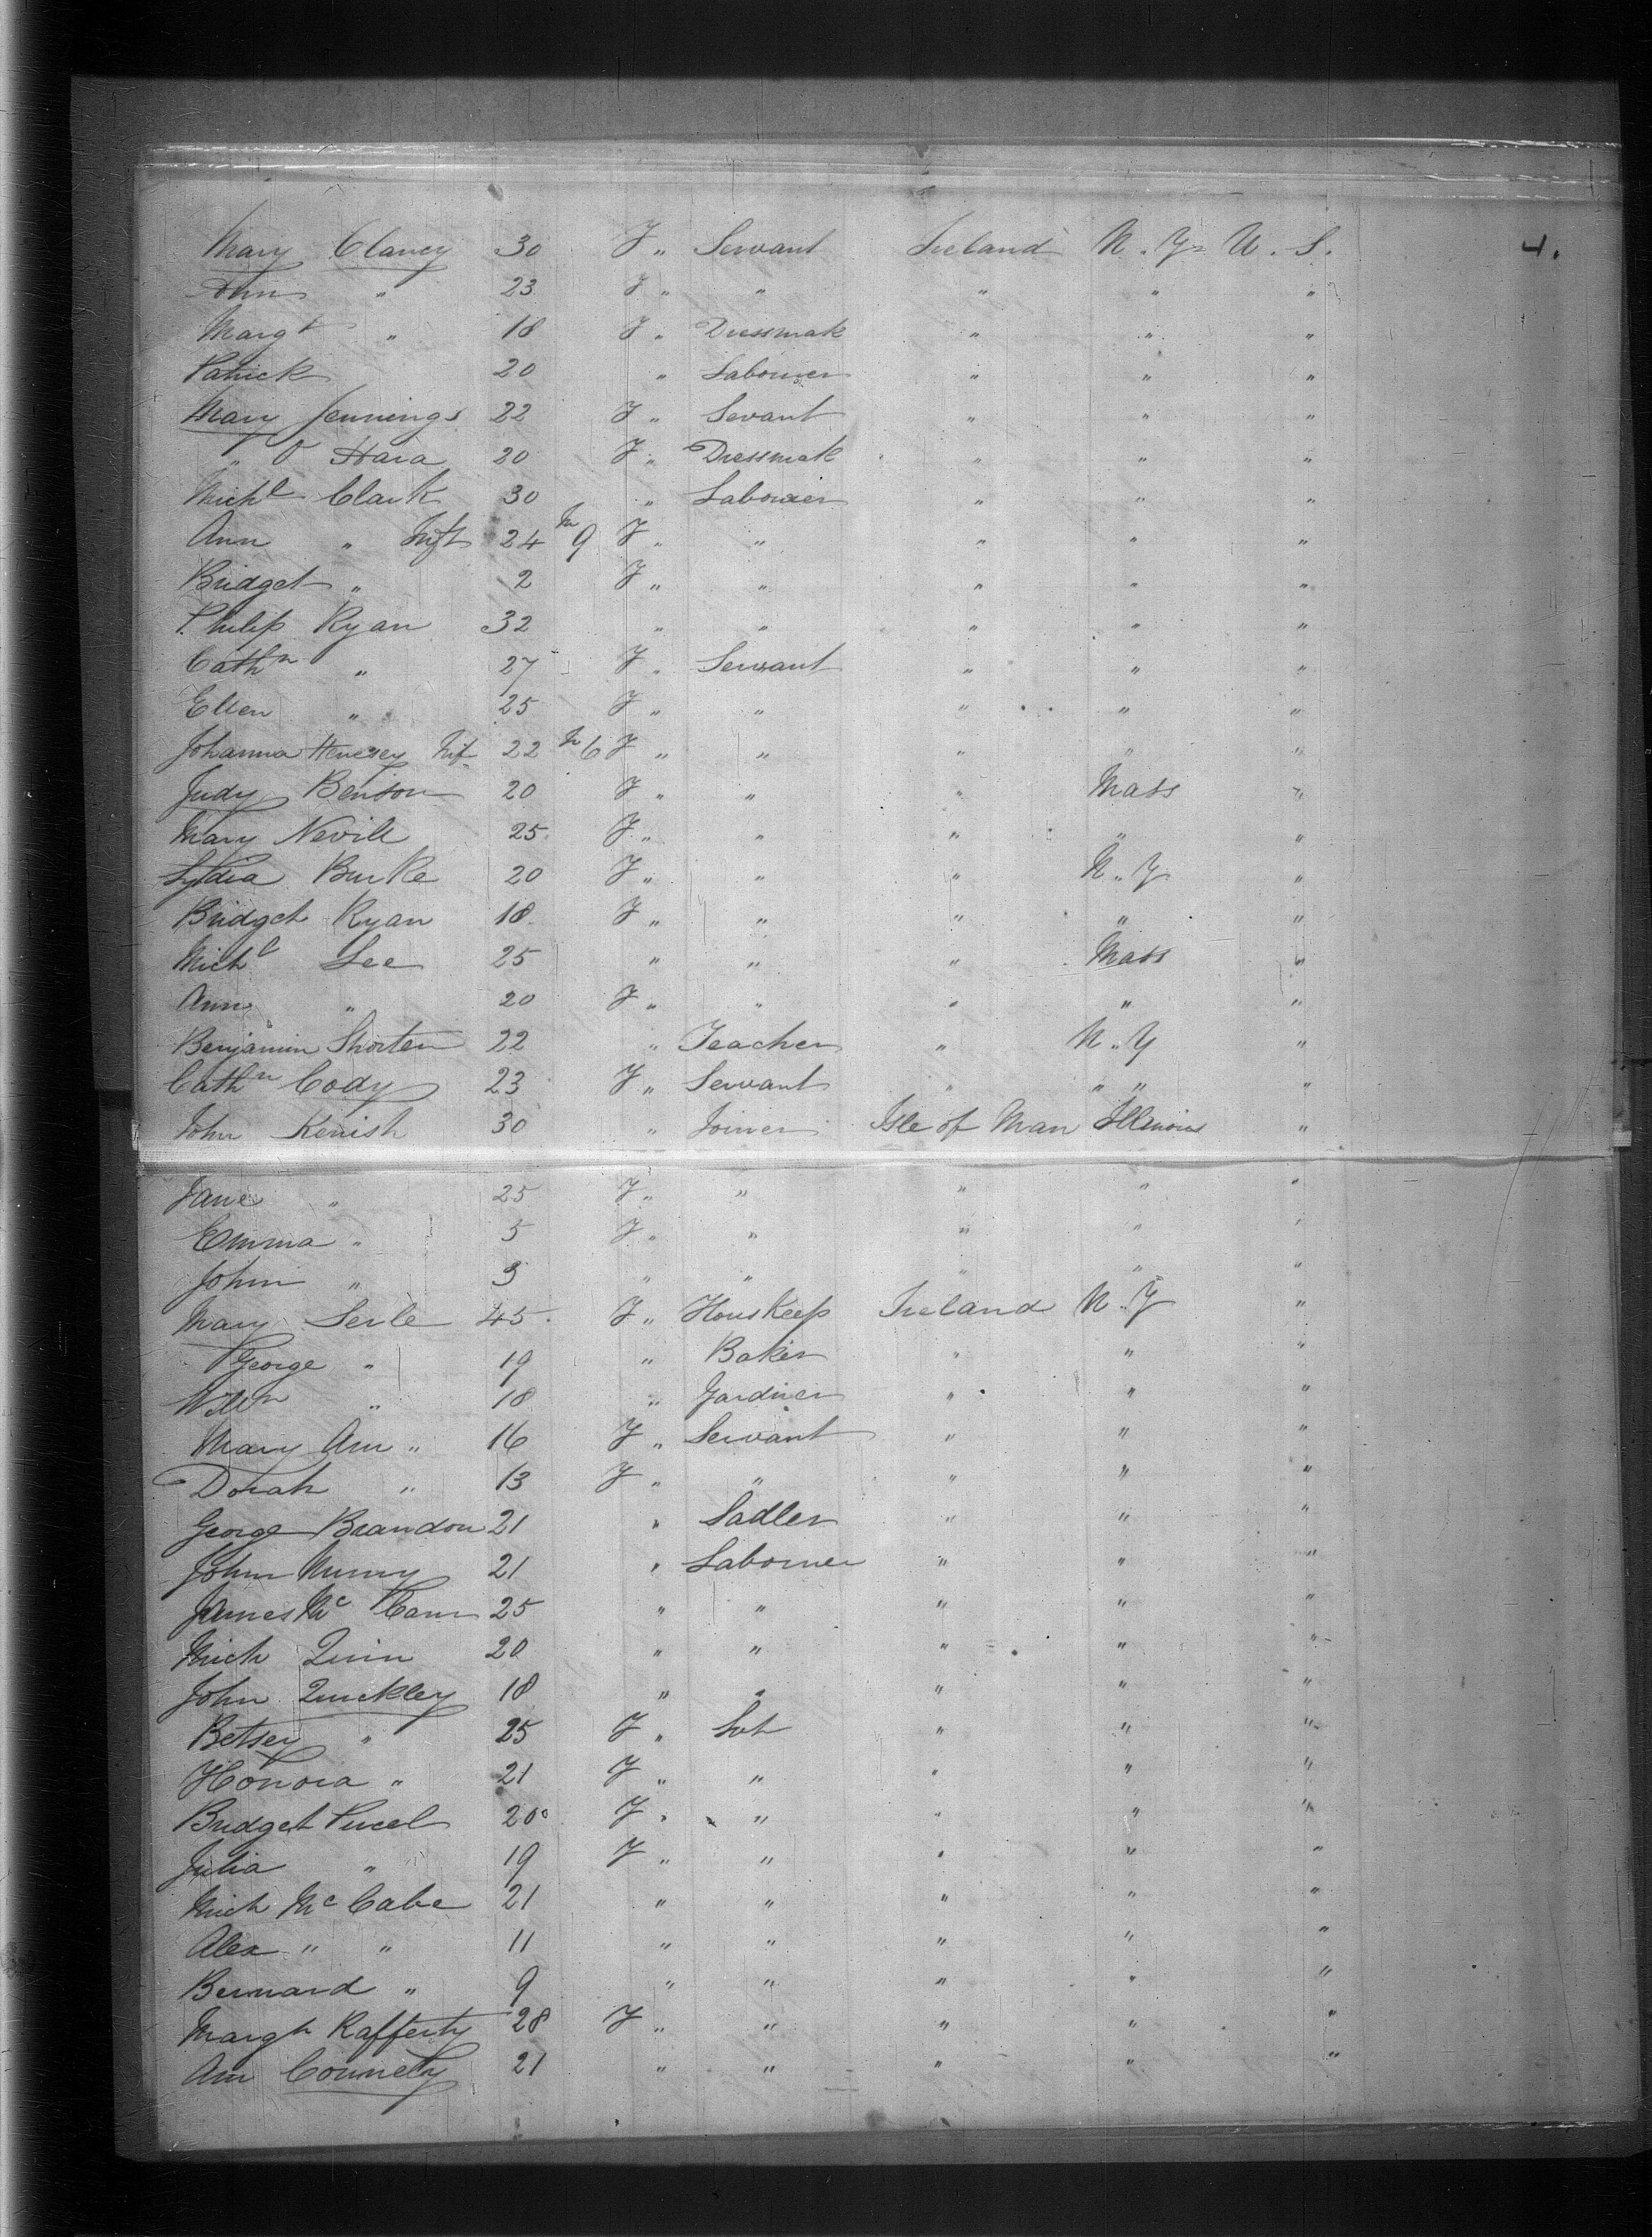 Mary Clancy 30 F " Servant Ireland N. Y. U. S. 4.
Ann " 23 F " " " " "
Margt " 18 F " Dressmak " " "
Patrick 20 " Labourer " " "
Mary Jennings 22 F " Sevant " " "
" O Hara 20 F " Dressmak " " "
Michl Clark 30 " Labourer " " "
Ann " Inft 24 m 9 F " " " " "
Bridget " 2 F " " " " "
Philip Ryan 32 " " " " "
Cathn " 27 F " Servant " " "
Ellen " 25 F " " " " "
Johanna Henesey Inf 22 m 6 F " " " " "
Judy Benson 20 F " " " Mass "
Mary Nevill 25 F " " " " "
Lydia Burke 20 F " " " N. Y "
Bridget Ryan 18 F " " " " "
Michl Lee 25 " " " Mass "
Ann " 20 F " " " " "
Benjamin Shorten 22 " Teacher " N. Y "
Cathn Cody 23 F " Servant " " " "
John Kenish 30 " Joiner Isle of Man Illinois "
Jane " 25 F " " " " "
Emma " 5 F " " " " "
John " 3 " " " " "
Mary Serle 45 F " Houskeep Ireland N. Y "
George " 19 " Baker " " "
Willm " 18 " Gardner " " "
Mary Ann " 16 F " Servant " " "
Dorah " 13 F " " " " "
George Brandon 21 " Sadler " " "
John Nunny 21 " Labourer " " "
James Mc Cann 25 " " " " "
Mich Quin 20 " " " " "
John Quickley 18 " " " " "
Betsey " 25 F " Svt " " "
Honora " 21 F " " " " "
Bridget Purcel 20 F " " " " "
Julia " 19 F " " " " "
Mich Mc Cabe 21 " " " " "
Alex " " 11 " " " " "
Bernard " 9 " " " " "
Margt Rafferty 28 F " " " " "
Ann Connely 21 " " " " "